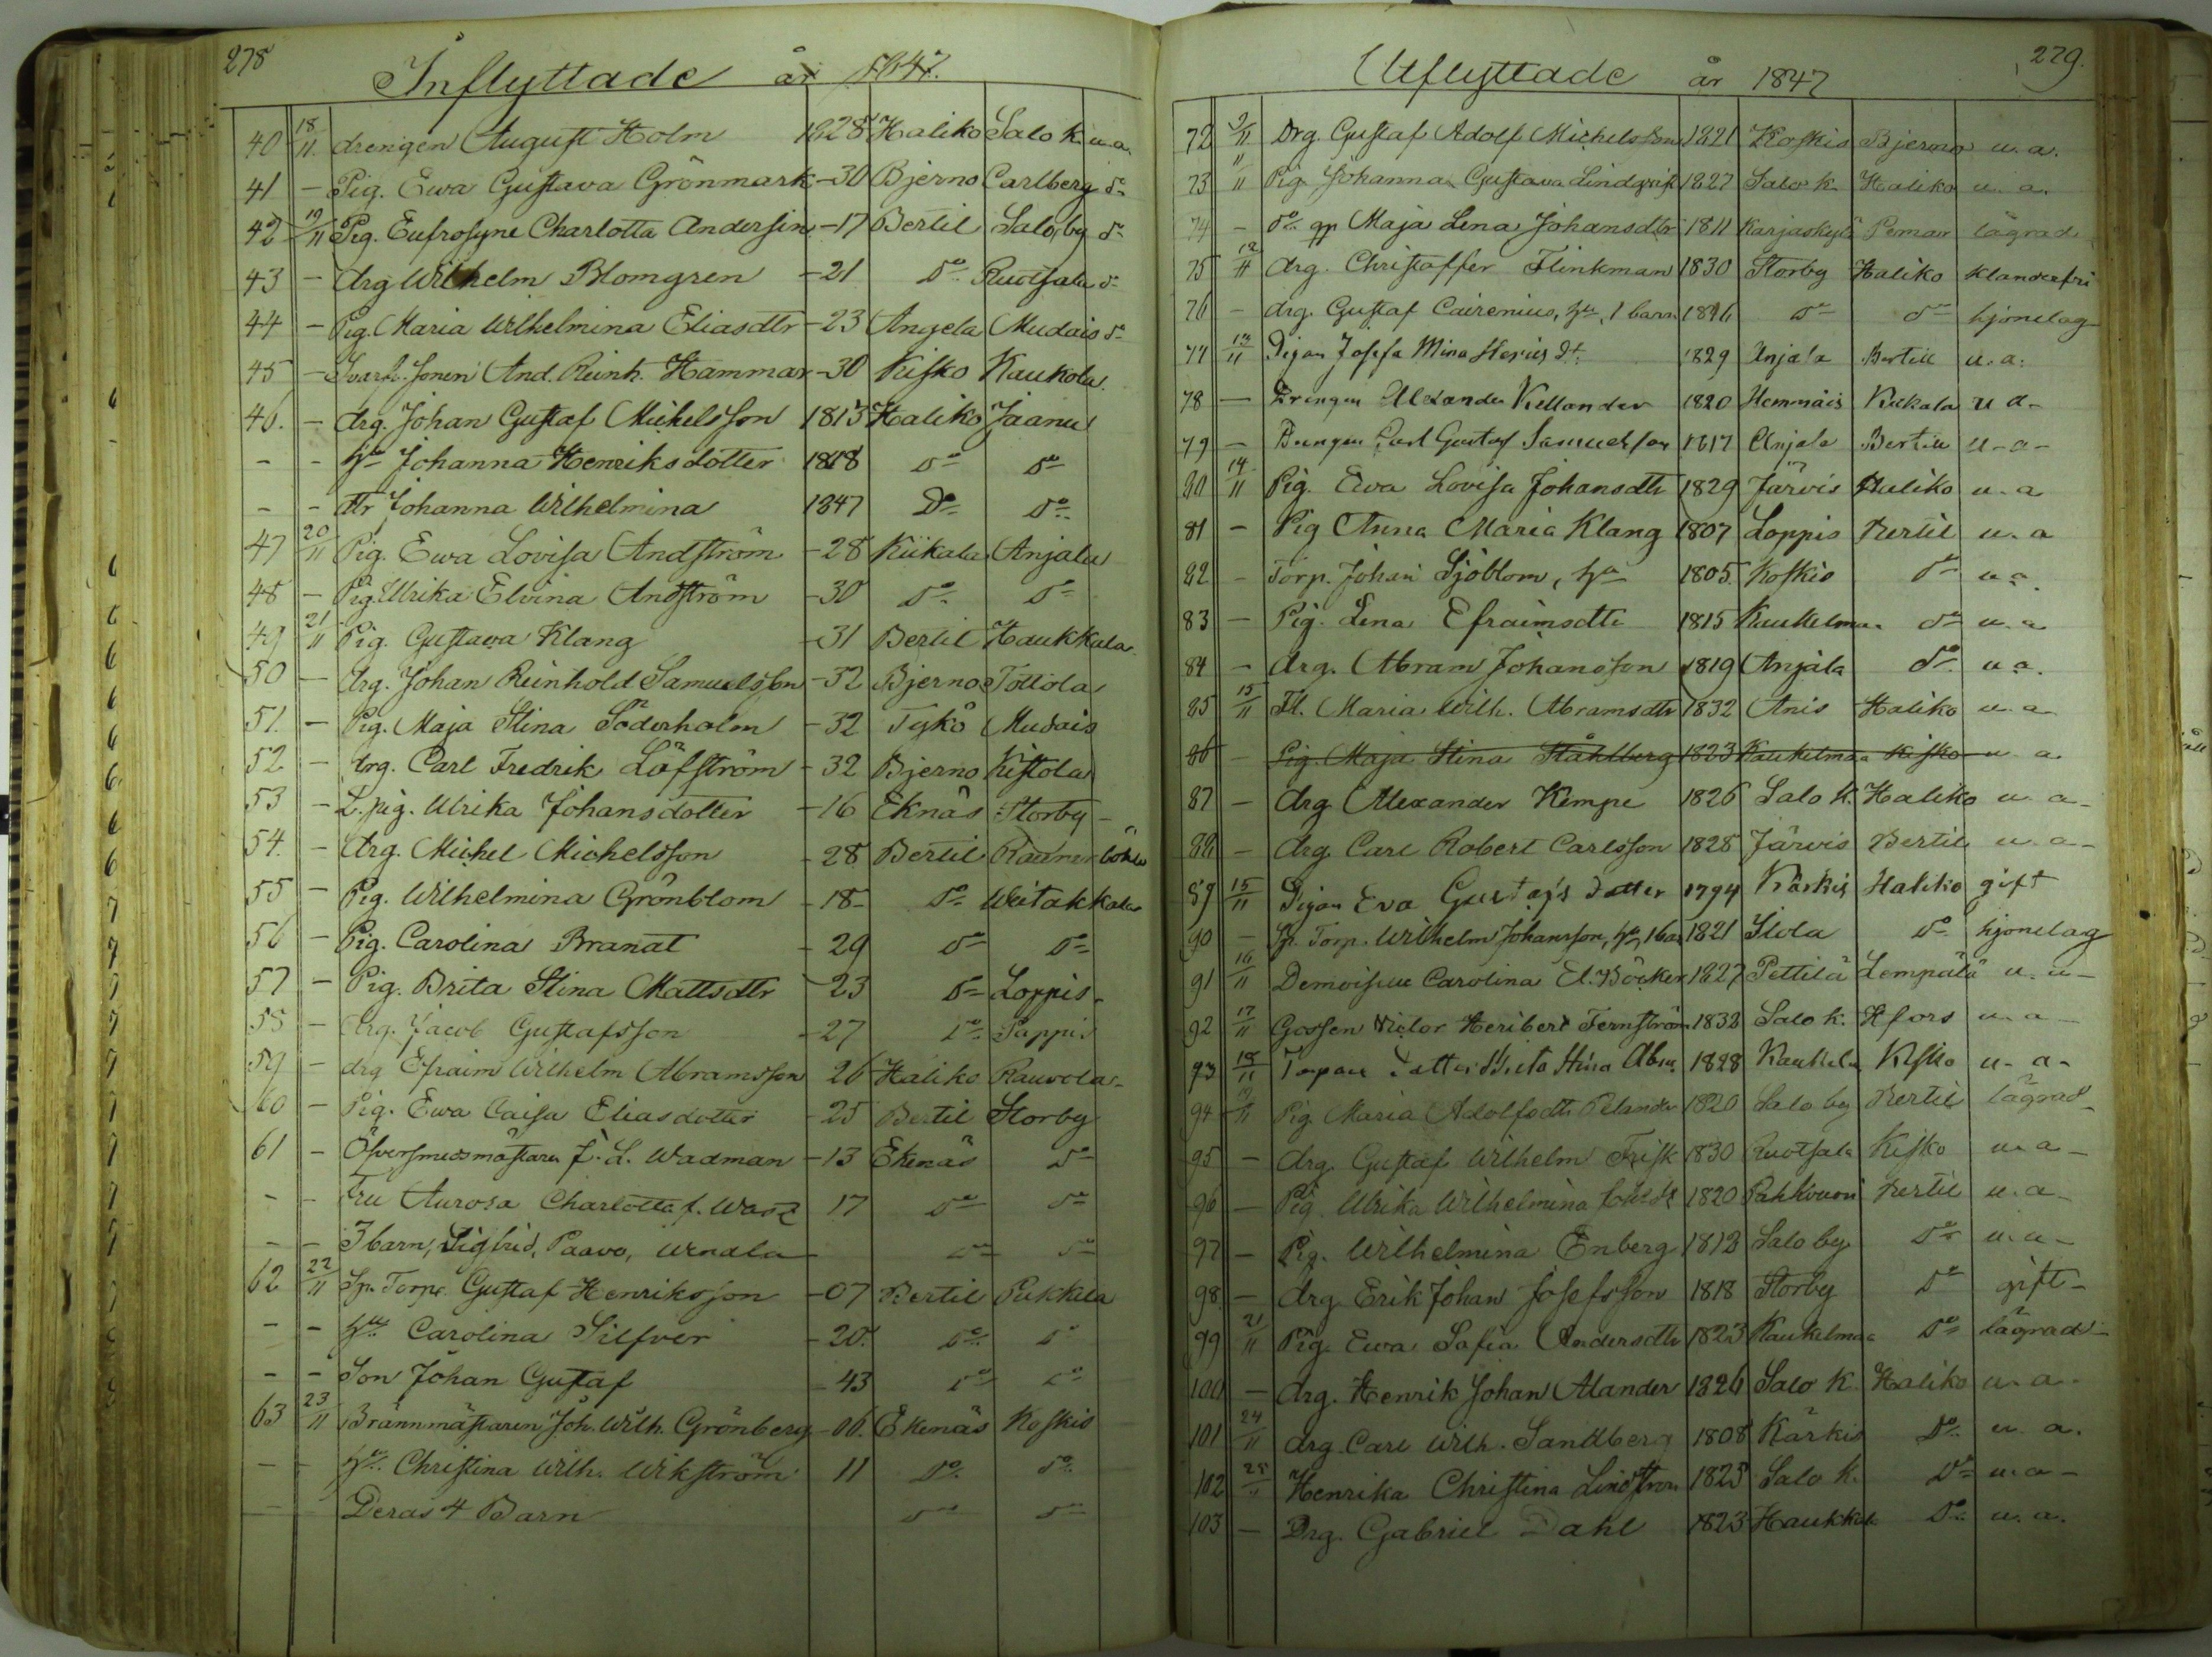 278
Inflyttade år 1847.
40 18/11. drengen August Holm 1828 Haliko Salo K. u.a.
41 - Pig. Ewa Gustava Grönmark -30 Bjerno Carlberg do
42 19/11 Pig. Eufrosyne Charlotta Andersin -17 Bertil Salo by do
43 - drg Wilhelm Blomgren -21 do Ruotsala do
44 - Pig. Maria Wilhelmina Eliasdtr -23 Angela Mudais do
45 - Svarf. sonen And. Reinh. Hammar -30 Kisko Kaukola
46. - drg. Johan Gustaf Michelsson 1813 Haliko Jaanu
- - hu Johanna Henriksdotter 1818 do do
- - dtr Johanna Wilhelmina 1847 Do do
47 20/11 Pig. Ewa Lovisa Andström -28 Kiikala Anjala
48 - Pig. Ulrika Elvina Andström -30 do do
49 21/11 Pig. Gustava Klang -31 Bertil Haukkala
50 - drg. Johan Reinhold Samuelsson -32 Bjerno Tottola
51. - Pig. Maja Stina Söderholm -32 Tykö Mudais
52 - drg. Carl Fredrik Löfström -32 Bjerno Kistola
53 - L. pig. Ulrika Johansdotter -16 Eknäs Storby -
54. - drg. Michel Michelsson -28 Bertil
55 - Pig. Wilhelmina Grönblom -18- do Weitakkala
56 - Pig. Carolina Branat -29 do do
57 - Pig. Brita Stina Mattsdtr -23 do Loppis
58 - drg. Jacob Gustafsson -27 do Pappis
59 - drg Efraim Wilhelm Abramsson 26 Haliko Rauvola-
60 - Pig. Ewa Caisa Eliasdotter -25 Bertil Storby
61 - Öfversmedsmästaren F. L. Wadman -13 Ekenäs do
- - Fru Aurora Charlotta f. 17 do do
- - 3 barn, Sigfrid, Paavo, Wendla - do do
62 22/11 Sp. Torp. Gustaf Henriksson -07 Bertil Pukkila
- - hu Carolina Silfver -20. do do
- - Son Johan Gustaf -43 do do
63 23/11 Brännmästaren Joh. Wilh. Grönberg -06. Ekenäs Koskis
- - hu. Christina Wilh. Wikström 11 do do
- Deras 4 Barn do do
279.
Utflyttade år 1847
72 9/11 Drg. Gustaf Adolf Michelsson 1821 Koskis Bjerno u. a.
73 11/11 Pig Johanna Gustava Lindqvist 1827 Salo K. Haliko u. a.
74 - do gp Maja Lena Johansdtr 1811 Karjaskylä Pemar lägrad
75 12/11 drg. Christaffer Flinkman 1830 Storby Haliko klanderfri
76 - drg. Gustaf Cairenius, hu, 1 barn 1816 do do hjonelag
77 13/11 Pigan Josefa Mina 1829 Anjala Bertill u. a.
78 - Drengen Alexander Kellander 1820 Hemmäis Kiikala u a-
79 - Drengen Carl Gustaf Samuelson 1817 Anjala Bertill u-a-
80 14/11 Pig. Ewa Lovisa Johansdtr 1829 Järvis Haliko u. a
81 - Pig Anna Maria Klang 1807 Loppis Bertil u. a
82 - Torp. Johan Sjöblom, hu 1805. Koskis do u a.
83 - Pig. Lena Efraimsdtr 1815 Kaukelmaa do u. a
84 - drg. Abram Johansson 1819 Anjala do u a.
85 15/11 Fl. Maria Wilh. Abramsdtr 1832 Anis Haliko u. a
86 - Pig. Maja Stina Ståhlberg 1823 Kaukelmaa Kisko u a.
87 - drg Alexander Kempe 1826 Salo K. Haliko u. a-
88 - drg. Carl Robert Carlsson 1828 Järvis Bertil u. a-
89 15/11 Pigan Eva Gustafs dotter 1794 Kärkis Haliko gift
90 - Sp. Torp. Wilhelm Johansson, hu, 1 ba 1821 Isola do hjonelag
91 16/11 Demoiselle Carolina El. Böcker 1827 Pettilä Lempälä u. a-
92 17/11 Gossen Victor Heribert Fernström 1832 Salo k. Hfors u. a-
93 18/11 Torpare dotter Brita Stina 1828 Kisko u-a-
94 19/11 Pig. Maria Adolfsdtr Pelander 1820 Salo by Bertil lägrad-
95 - drg. Gustaf Wilhelm Frisk 1830 Ruotsala Kisko u-a-
96 - Pig. Ulrika Wilhelmina 1820 Pahkvuori Bertil u. a-
97 - Pig. Wilhelmina Enberg 1812 Salo by do u. a-
98. - drg Erik Johan Josefsson 1818 Storby do gift-
99 21/11 Pig Ewa Safia Andersdtr 1823 Kaukelmaa do lägrad-
100 - drg. Henrik Johan Alander 1826 Salo K. Haliko u. a-
101 24/11 drg. Carl Wilh. Sandberg 1808 Kärkis do u. a.
102 25/11 Henrika Christina Lindström 1825 Salo K. do u. a-
103 - Drg. Gabriel Dahl 1823 Haukkala do u. a.